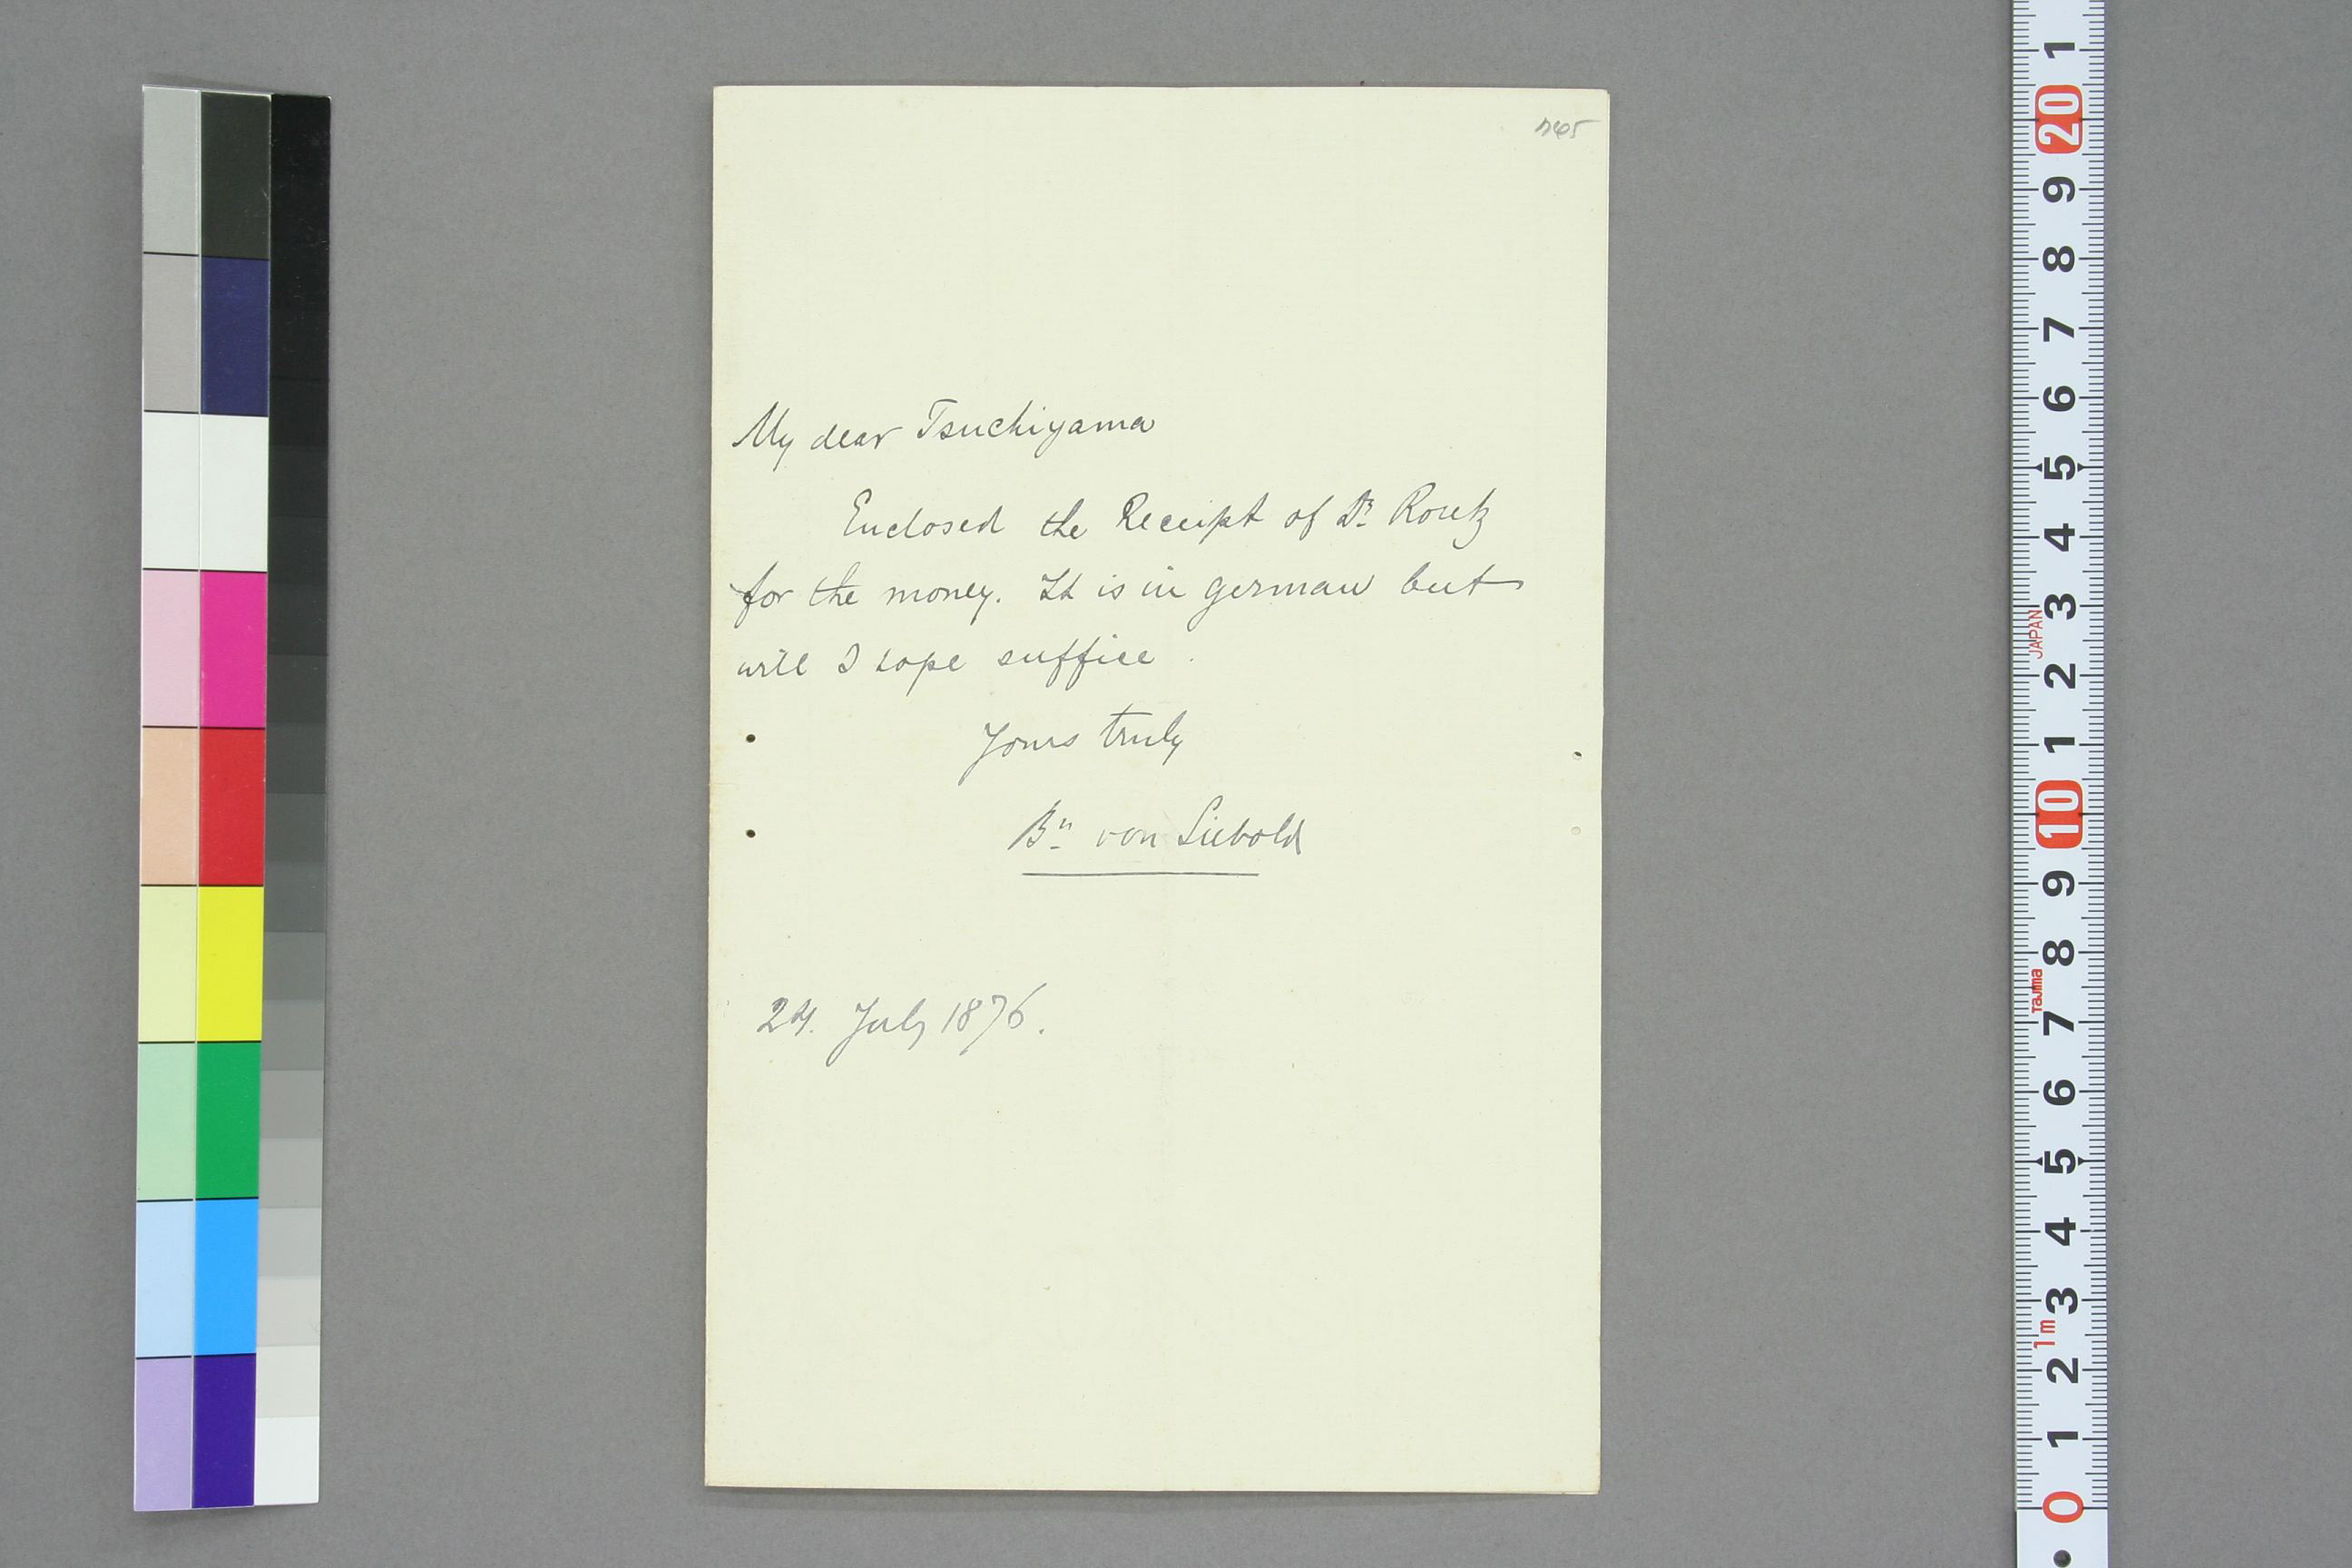 765
My dear Tsuchiyama
Enclosed the Receipt of Dr Roretz
for the money. It is in german but
will I hope suffice.
Yours truly
Bn von Siebold
24. July 1876.
1
20
9
8
7
6
5
4
3
JAPAN
2
1
10
9
8
Tajima
7
6
5
4
3
1m
2
1
0